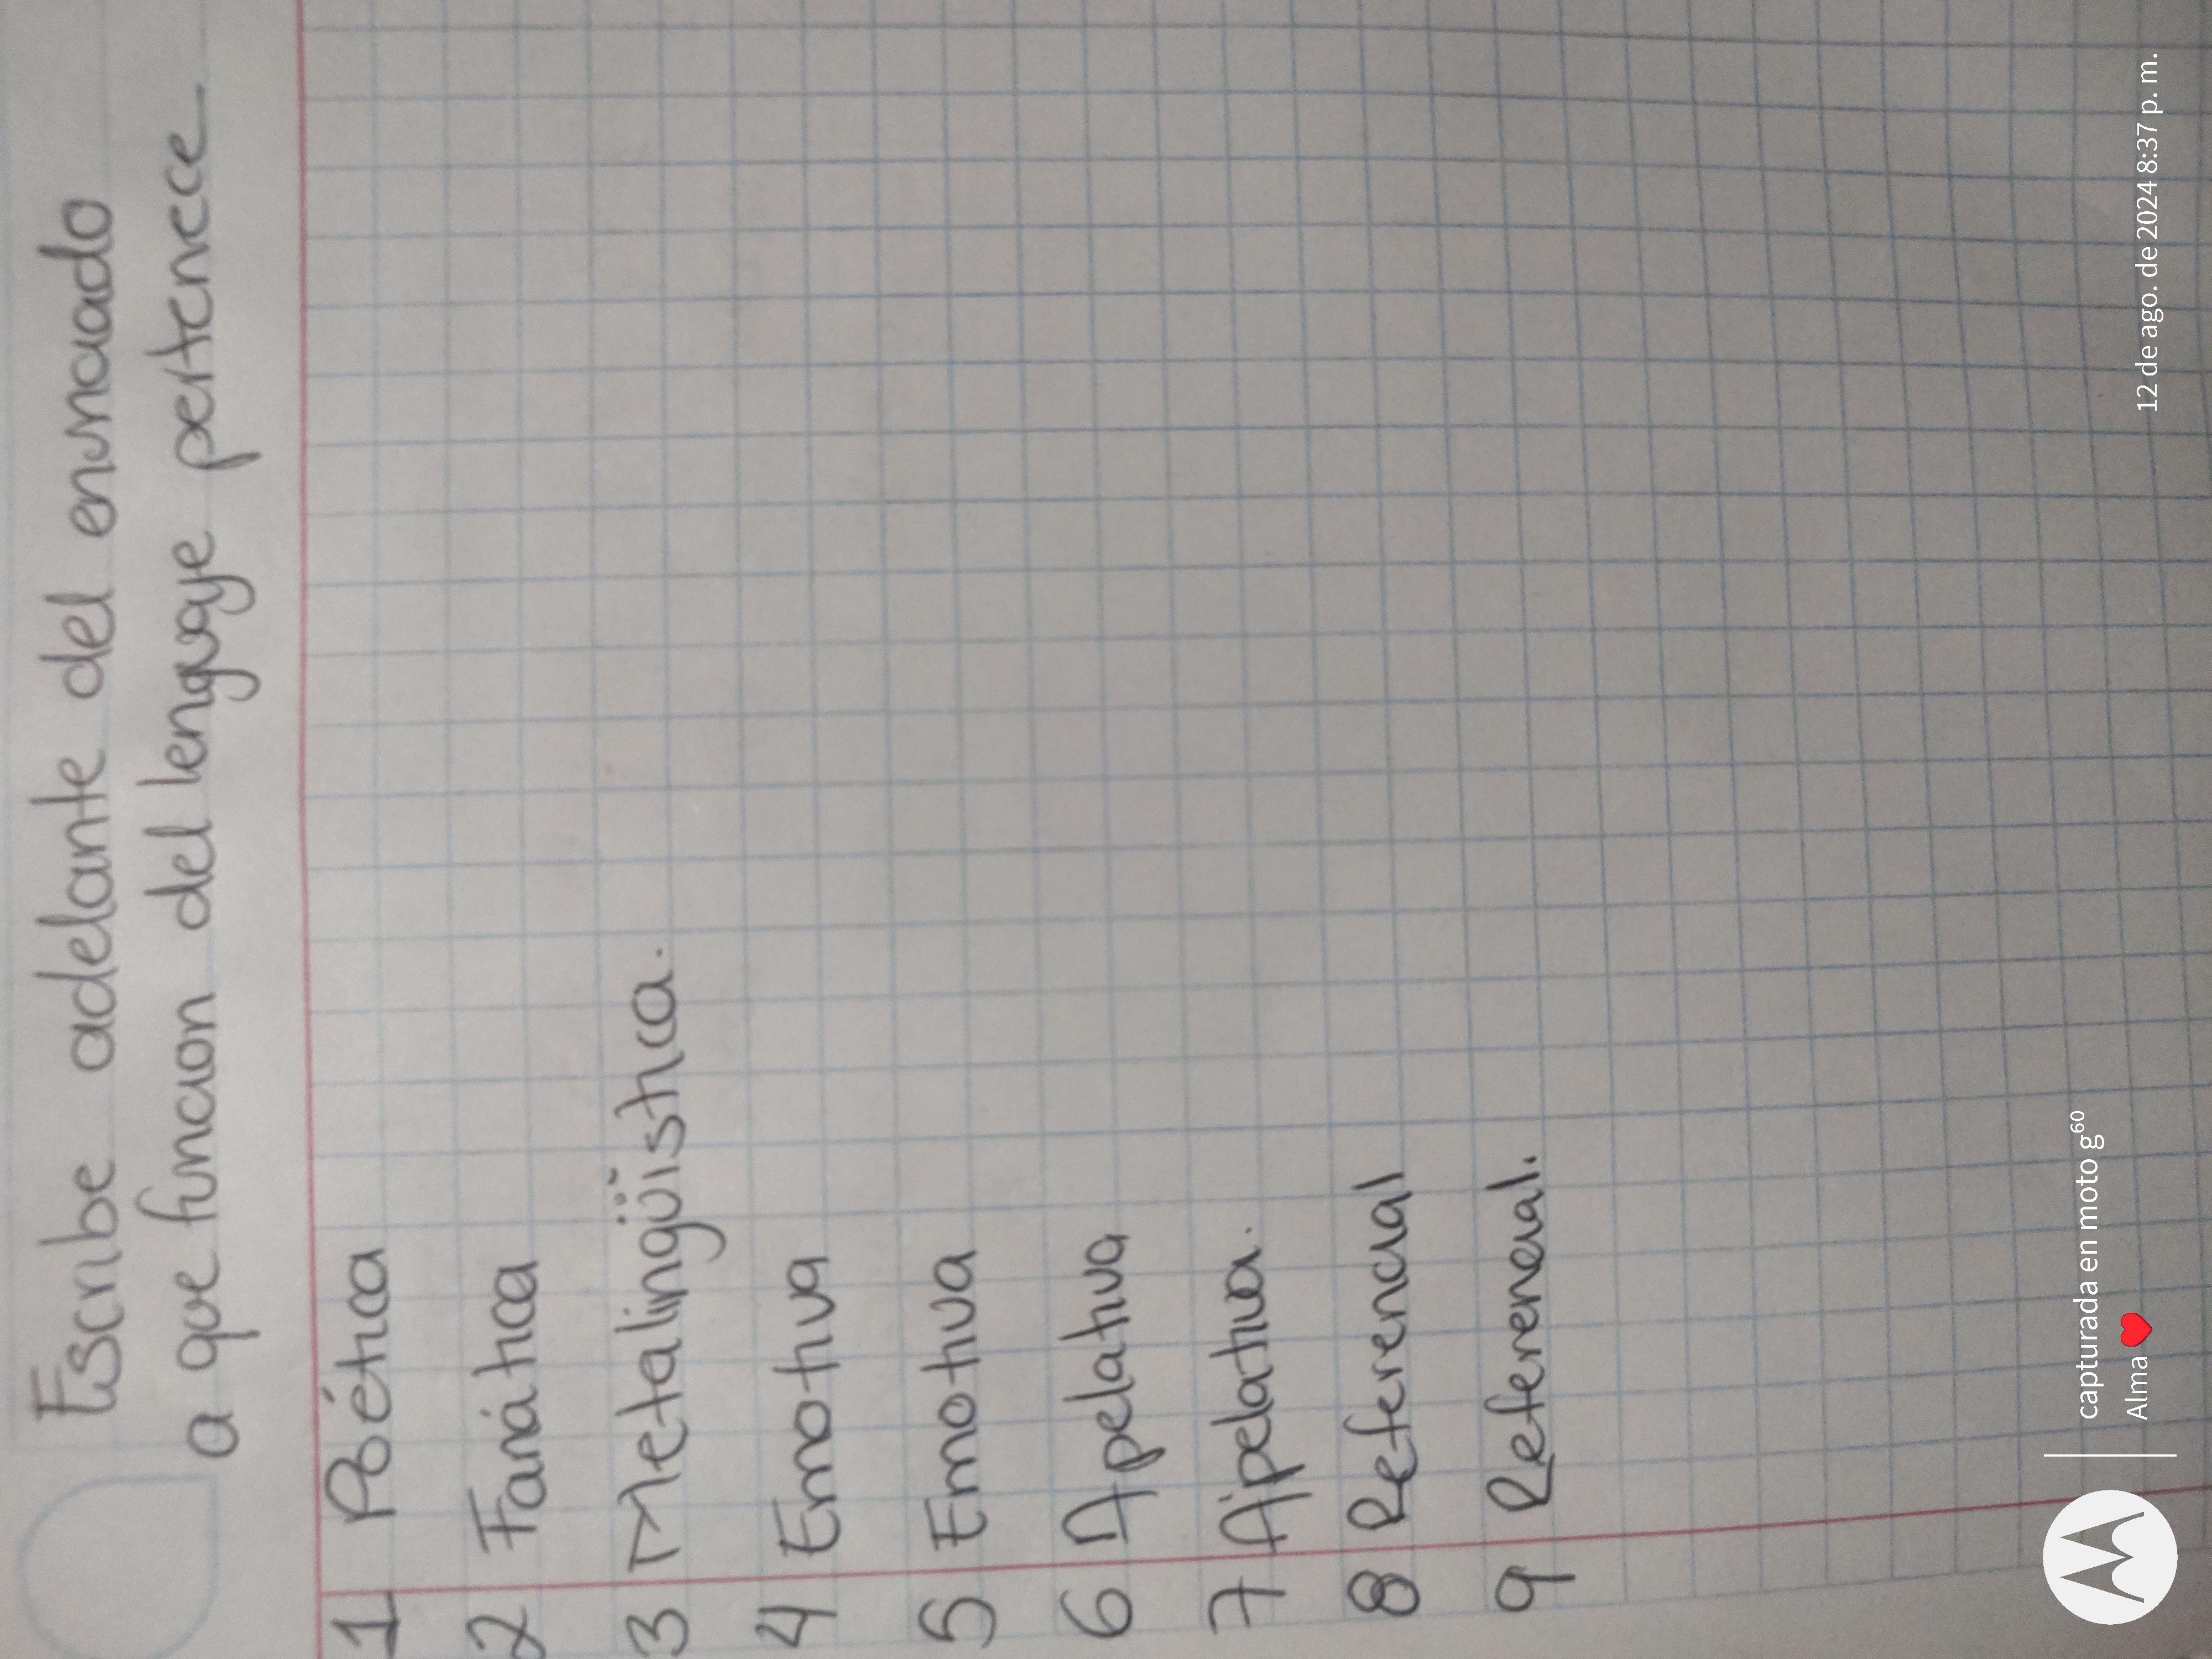 Escribe adelante del enunciado
a que funcion del lenguaje pertenece
1 Poética
2 Fanática
3 Metalingüística.
4 Emotiva
5 Emotiva
6 Apelativa
7 Apelativa.
8 Referencial
9 Referencial.
capturada en moto g60
Alma ❤️
12 de ago. de 2024 8:37 p. m.